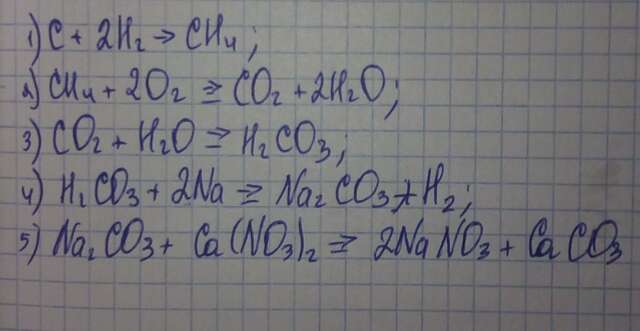 1) C + 2H₂ → CH₄;
2) CH₄ + 2O₂ ⇒ CO₂ + 2H₂O;
3) CO₂ + H₂O ⇒ H₂CO₃;
4) H₂CO₃ + 2Na ⇒ Na₂CO₃ + H₂;
5) Na₂CO₃ + Ca(NO₃)₂ ⇒ 2NaNO₃ + CaCO₃